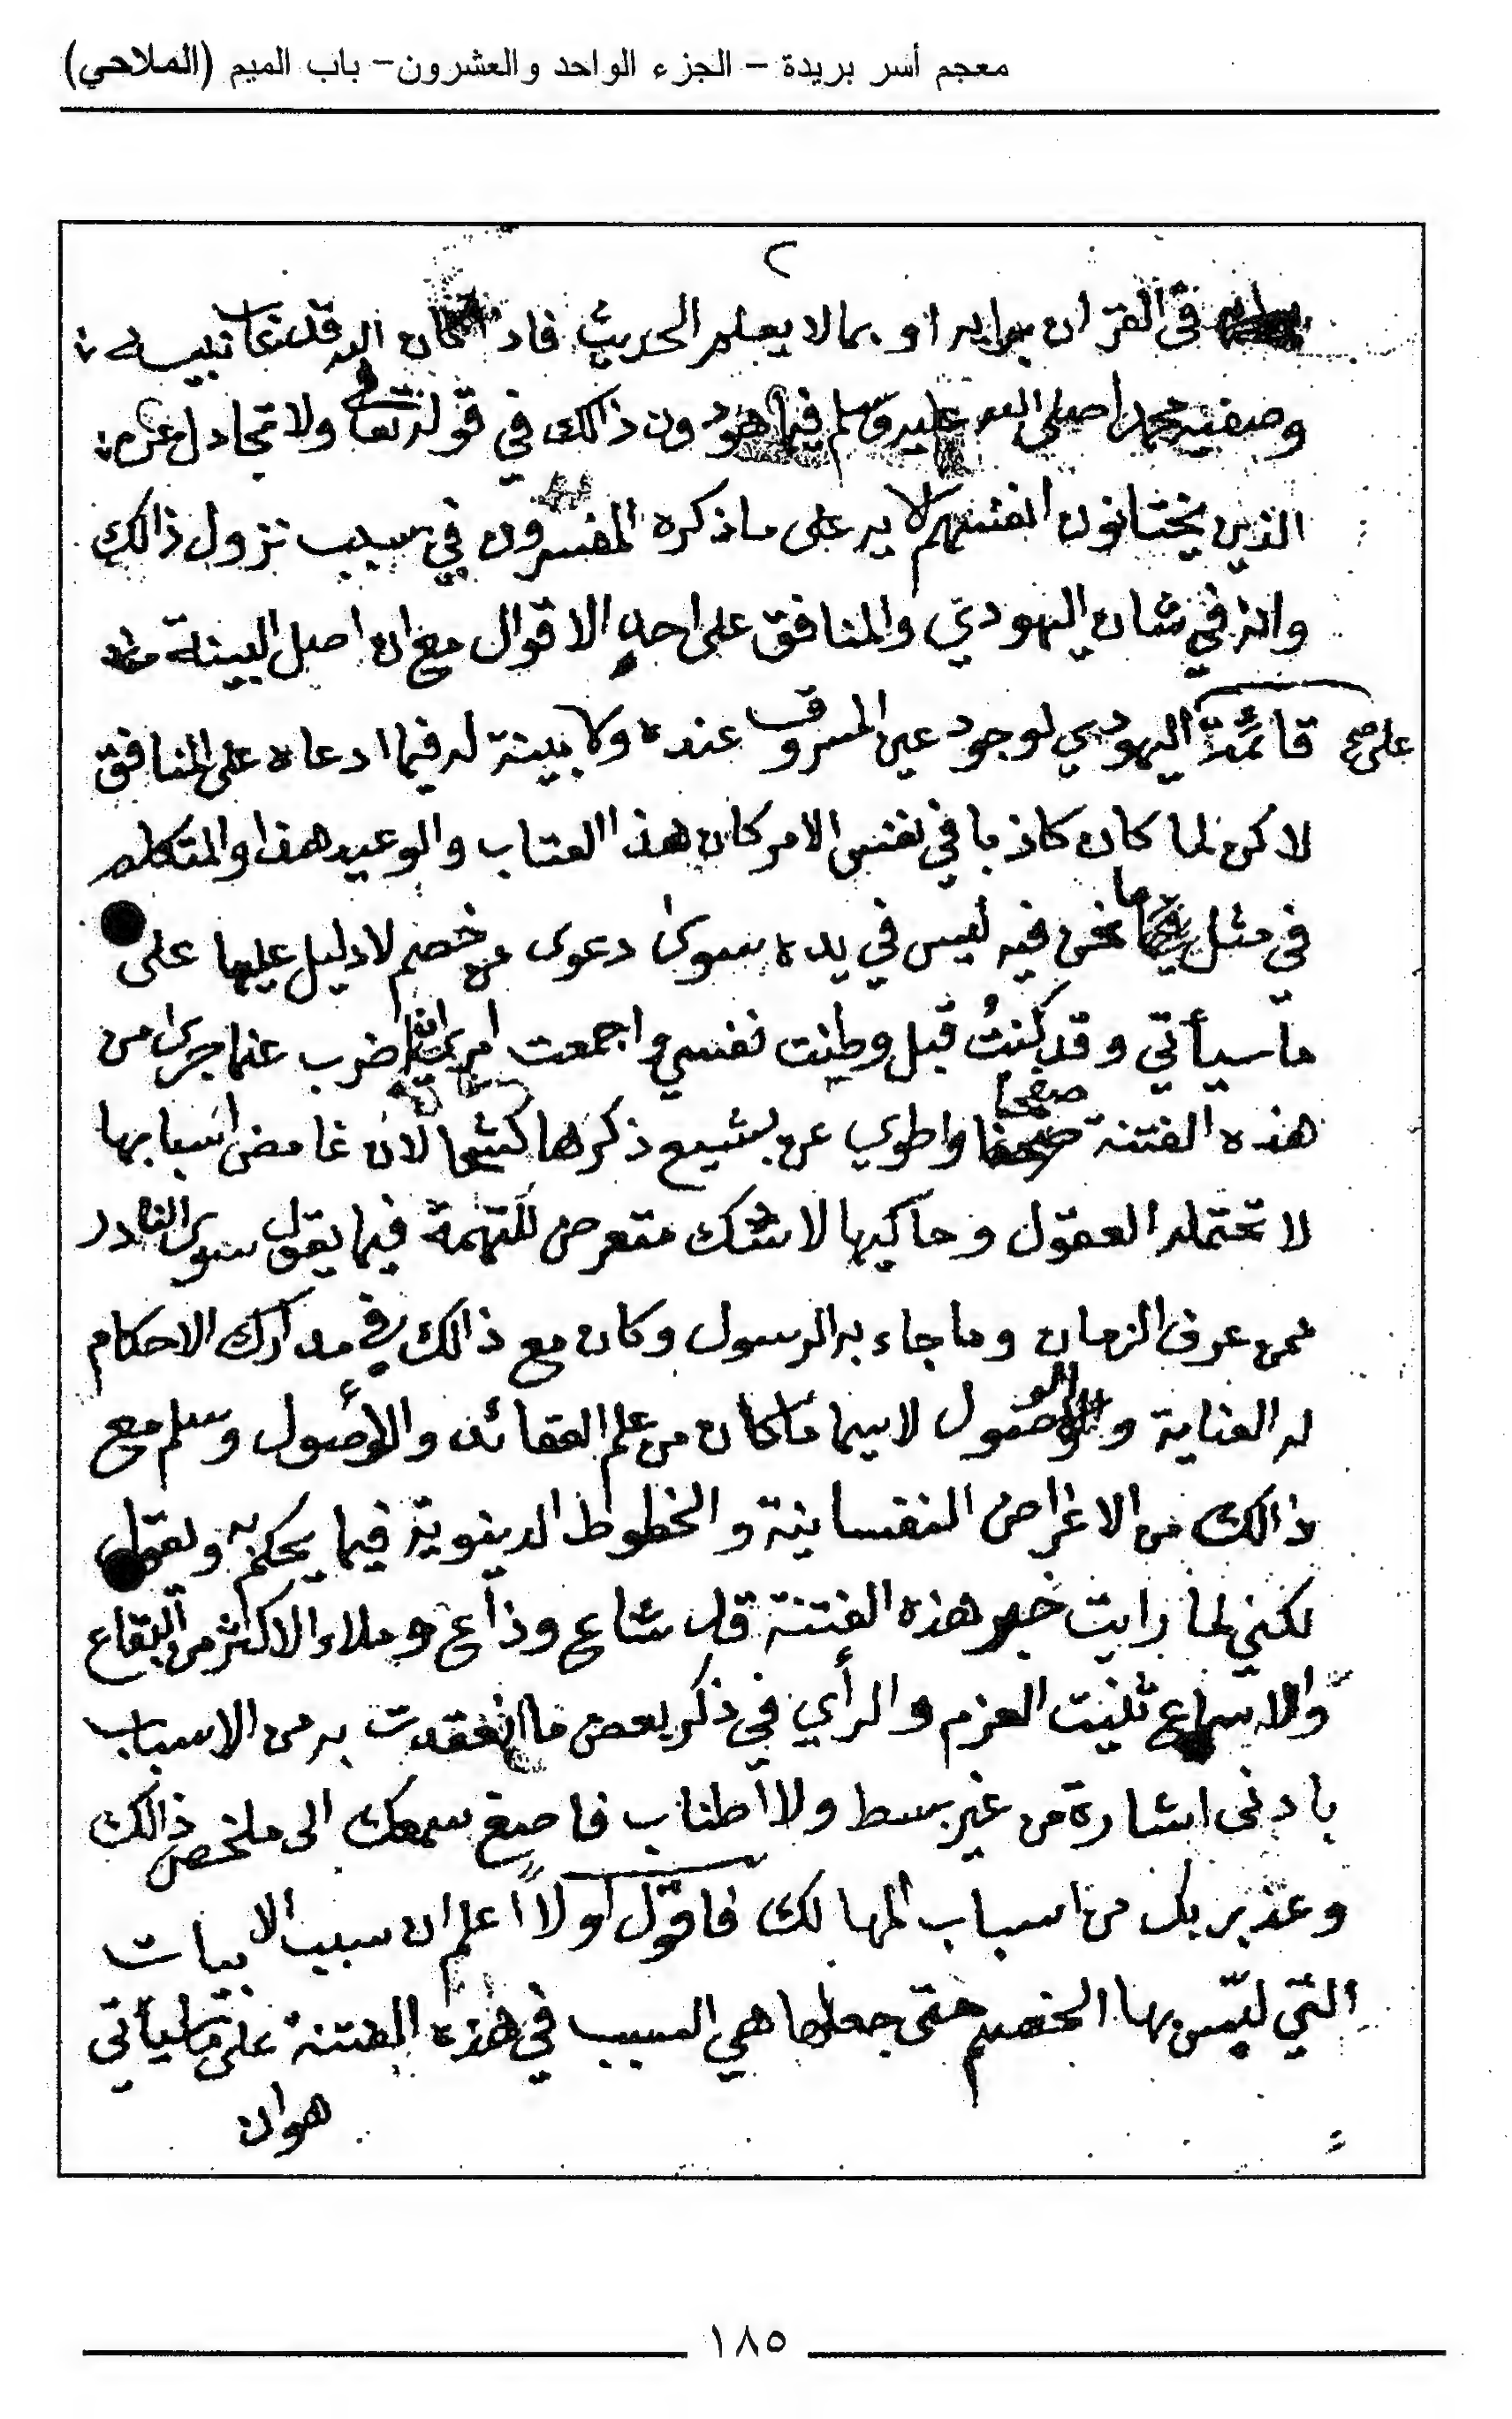 معجم أسر بريدة – الجزء الواحد والعشرون– باب الميم (الملاحي)
٢
في القران برايه او بما لا يعلم الحديث فاذا كان الله قد عاتب نبيه
وصفيه محمدا صلى الله عليه وسلم فيما هو دون ذالك في قوله تعا ولا تجادل عن
الذين يختانون انفسهم الايه على ما ذكره المفسرون في سبب نزول ذالك
وانه في شان اليهودي والمنافق على احد الاقوال مع ان اصل البينة
قائمة على صح اليهودي لوجود عين المسروق عنده ولا بينة له فيما ادعاه على المنافق
لاكن لما كان كاذبا في نفس الامر كان هذا العتاب والوعيد هذا والمتكلم
في مثل ما نحن فيه ليس في يده سوى دعوى من خصم لا دليل عليها على
ما سيأتي وقد كنتُ قبل وطنت نفسي واجمعت امري ان اضرب عما جرى من
هذه الفتنة صفحا واطوي عن بشيع ذكرها كشحا لان غامض اسبابها
لا تحتمله العقول وحاكيها لا شك متعرض للتهمة فيما يقول سوى النادر
ممن عرف الزمان وما جاء به الرسول وكان مع ذالك في مدارك الاحكام
له العناية والوصول لا سيما ما كان من علم العقائد والأصول وسلم مع
ذالك من الاغراض النفسانية والحظوظ الدينوية فيما يحكم به ويقول
لكنني لما رايت خبر هذه الفتنة قد شاع وذاع وملاء الاكثر من البقاع
والاسماع ثنيت العزم والرأي في ذكر بعض ما انعقدت به من الاسباب
بادنى اشارة من غير بسط ولا اطناب فاصغ سمعك الى ملخص ذالك
وعذ بربك من اسباب المهالك فاقول اولاً اعلم ان سبب الابيات
التي لبّس بها الخصم حتى جعلها هي السبب في هذه الفتنة على ما سيأتي
هو ان
١٨٥